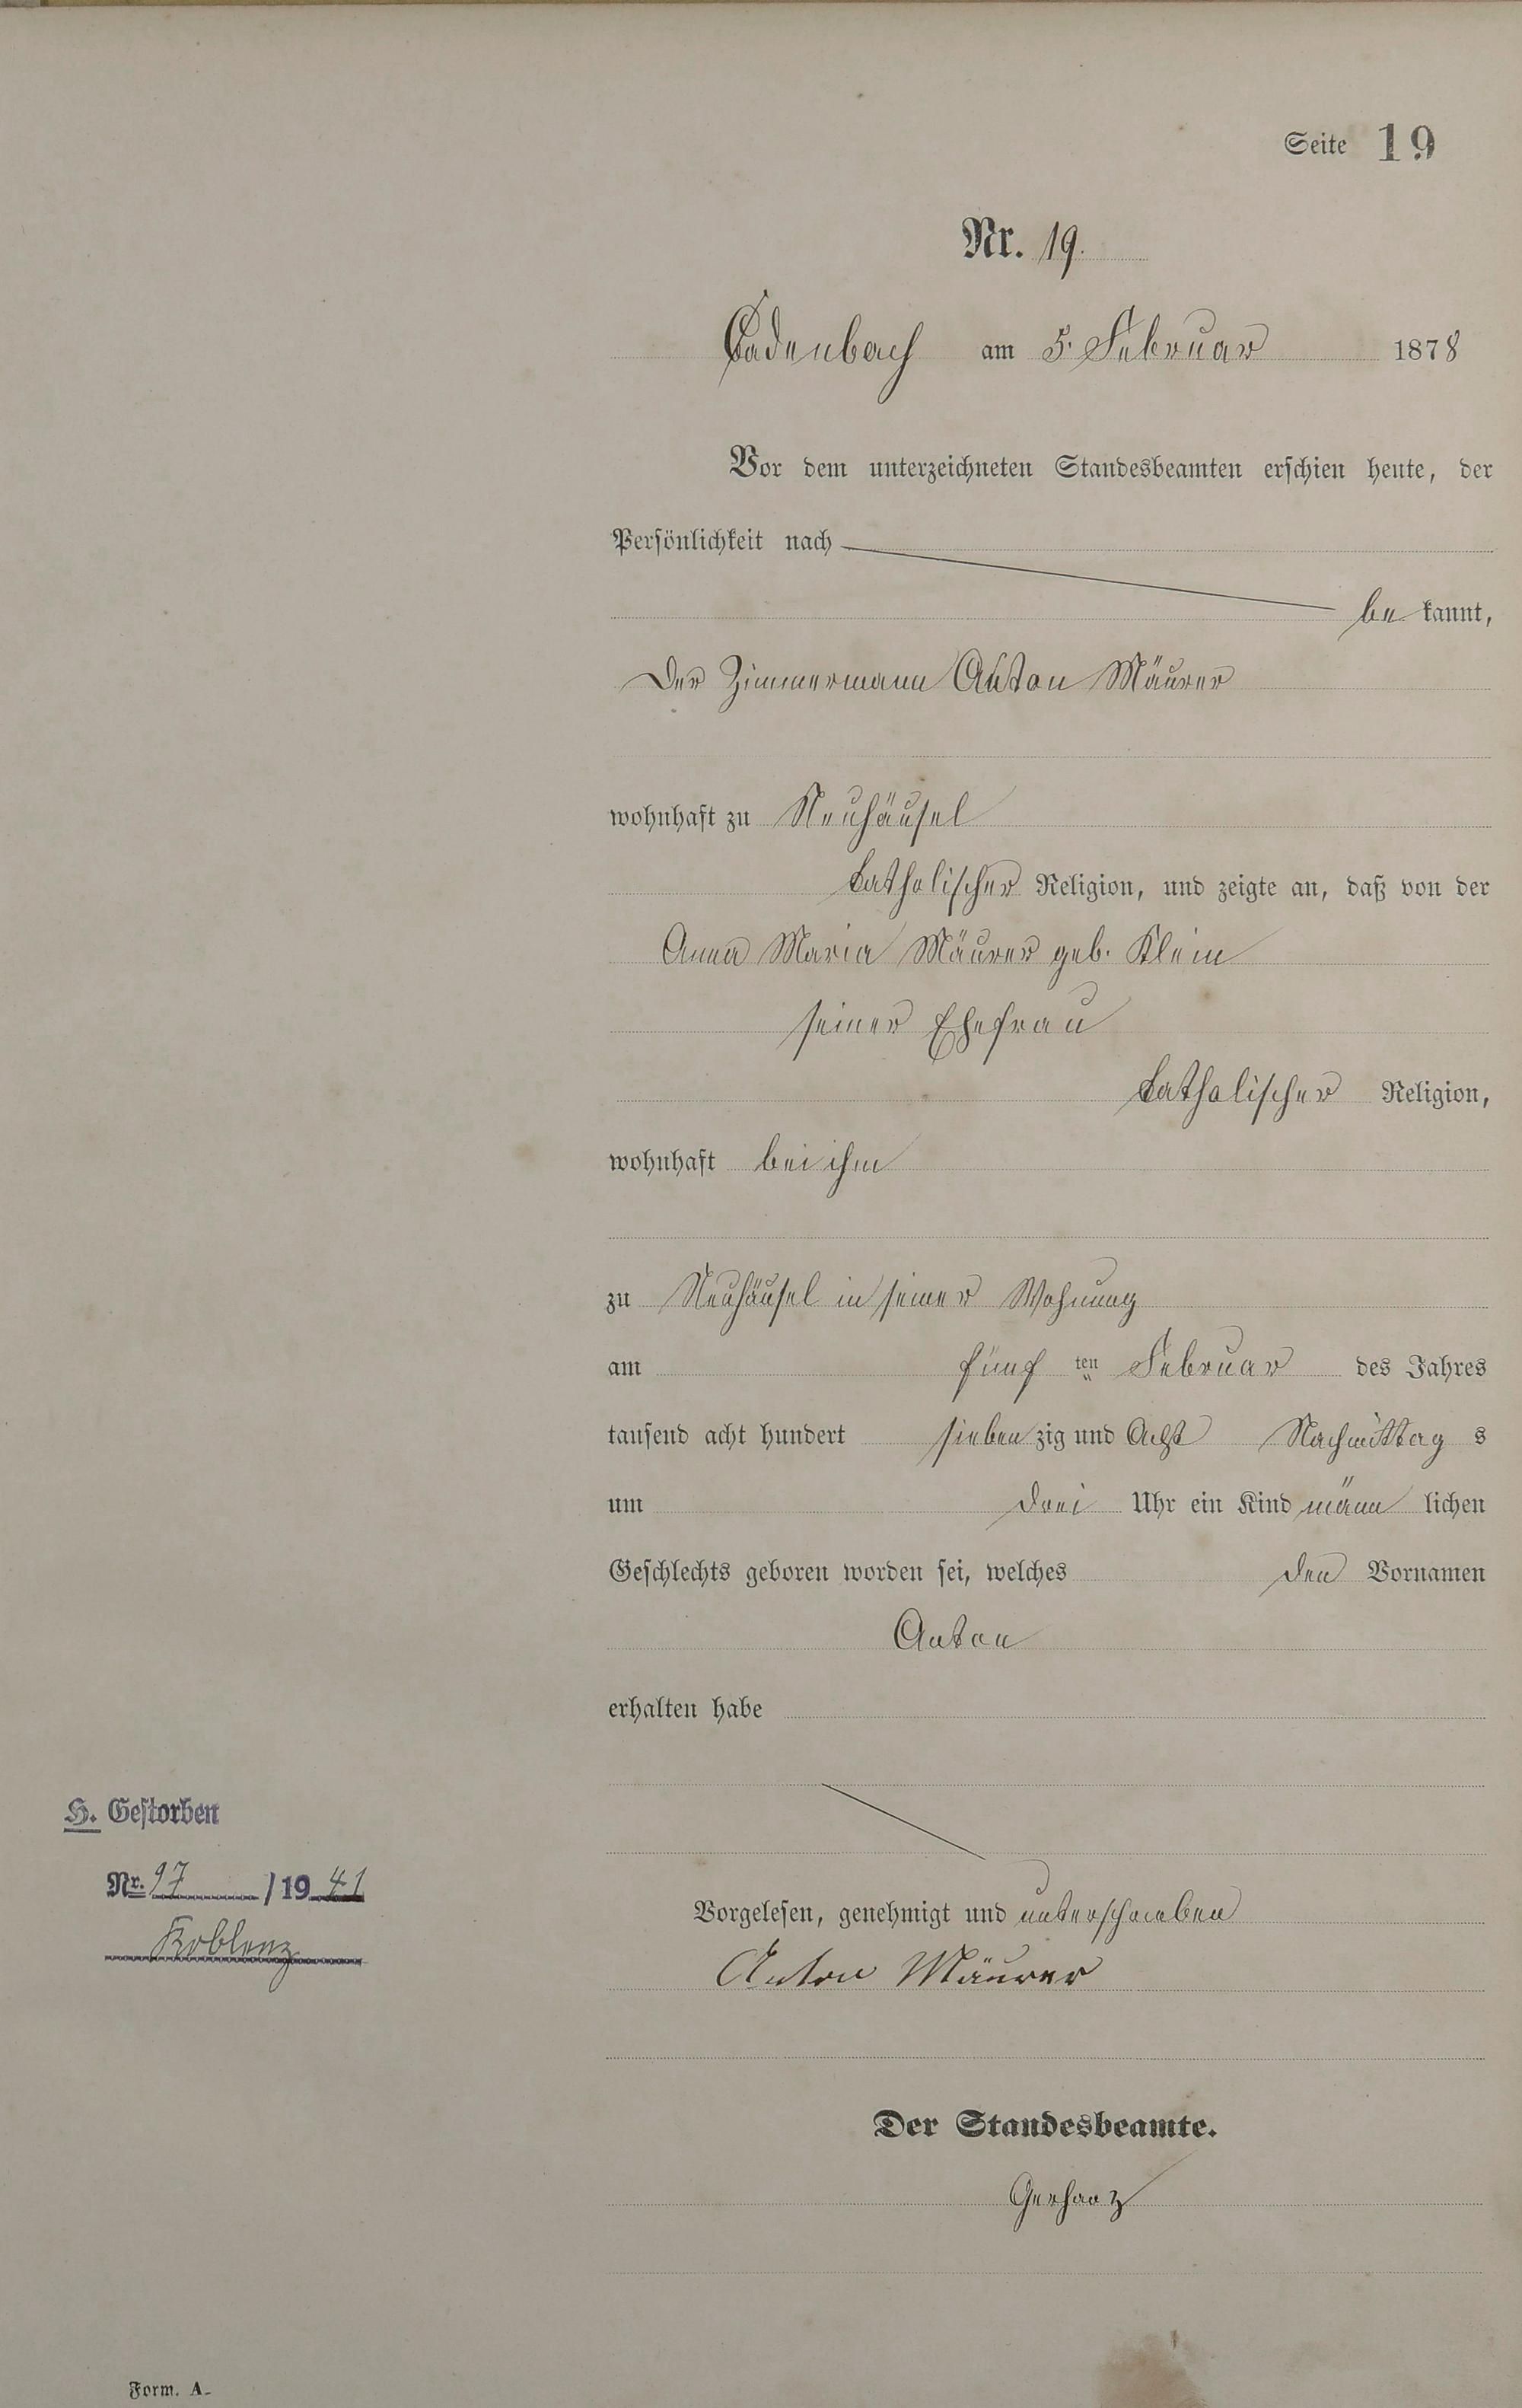 Seite 19
Nr. 19.
Cadenbach am 5. Februar 1878
Vor dem unterzeichneten Standesbeamten erschien heute, der
Persönlichkeit nach
be kannt,
Der Zimmermann Anton Mäurer
wohnhaft zu Neuhäusel
katholischer Religion, und zeigte an, daß von der
Anna Maria Mäurer geb. Klein
seiner Ehefrau
katholischer Religion,
wohnhaft bei ihm
zu Neuhäusel in seiner Wohnung
am fünf ten Februar des Jahres
tausend acht hundert sieben zig und Acht Nachmittag s
um drei Uhr ein Kind männ lichen
Geschlechts geboren worden sei, welches den Vornamen
Anton
erhalten habe
H. Gestorben
Nr. 97 / 19 41
Koblenz
Vorgelesen, genehmigt und unterschrieben
Anton Mäurer
Der Standesbeamte.
Gerharz
Form. A.